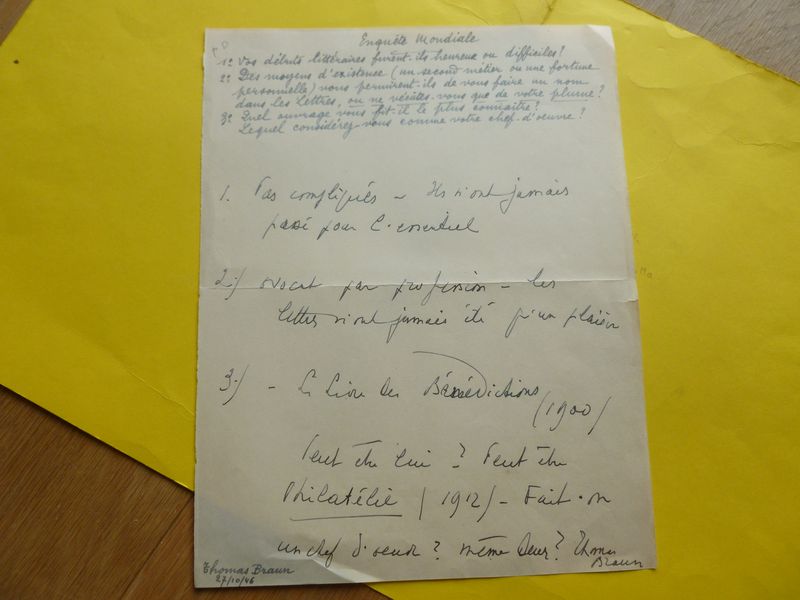 Enquête Mondiale
1º Vos débuts littéraires furent-ils heureux ou difficiles?
2º Des moyens d'existence (un second métier ou une fortune
personnelle) vous permirent-ils de vous faire un nom
dans les Lettres, ou ne vécûtes-vous que de votre plume?
3º Quel ouvrage vous fit-il le plus connaître?
Lequel considérez-vous comme votre chef-d'oeuvre?
1. Pas compliqués – Ils n'ont jamais
passé pour l'essentiel
2.) avocat par profession – les
lettres n'ont jamais été qu'un plaisir
3.) – Le Livre des Bénédictions
(1900)
Peut être lui? Peut être
Philatélie (1912) – Fait-on
un chef d'oeuvr? même deux? Thomas
Braun
Thomas Braun
27/10/46